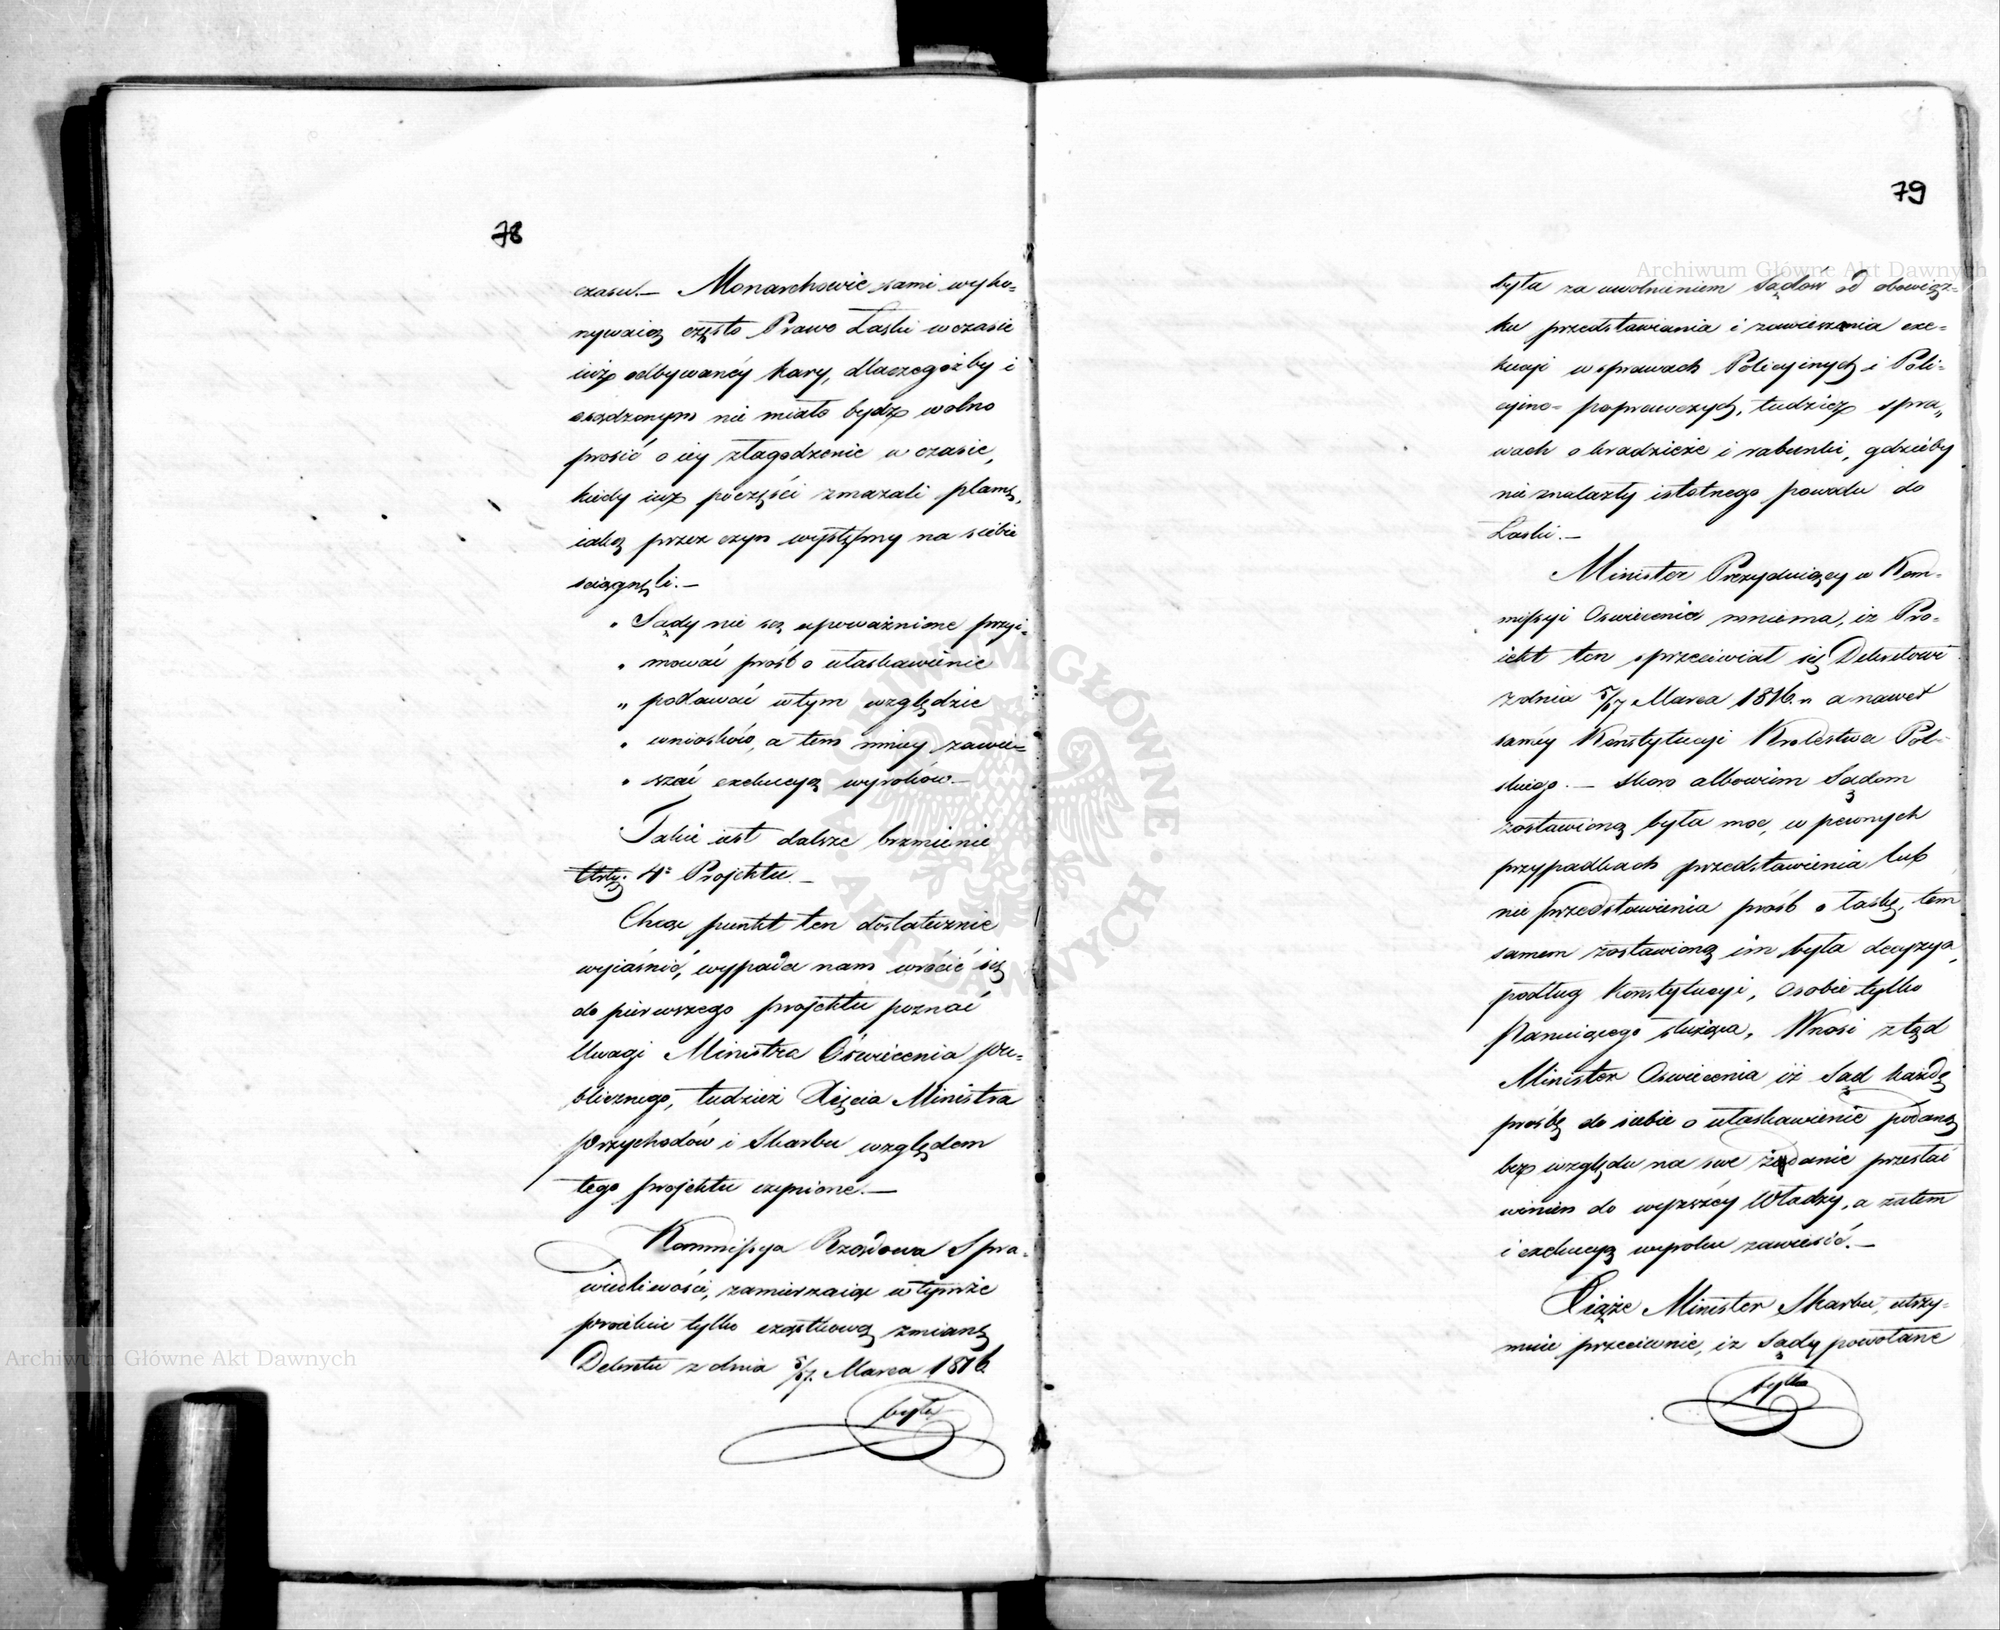 78
czasu. — Monarchowie sami wyko=
nywaiąc często Prawo Łaski w czasie
iuż odbywanéy kary, dlaczegożby i
osądzonym nie miało bydź wolno
prosić o iéy złagodzenie w czasie,
kiedy iuż poczęści zmazali plamę,
iaką przez czyn występny na siebie
sciągnęli. —
„ Sądy nie są upoważnione przyi=
„ mować prośb o ułaskawienie
„ podawać w tym względzie
„ wniosków, a tem mniéy zawie=
„ szać exekucyą wyroków. —
Takie iest dalsze brzmienie
Arty: 4º Projektu. —
Chcąc punkt ten dostatecznie
wyiaśnić, wypada nam wrócić się
do pierwszego projektu poznać
Uwagi Ministra Oświecenia pu=
blicznego, tudzież Xięcia Ministra
Przychodów i Skarbu względem
tego projektu czynione. —
Kommissya Rządowa Spra=
wiedliwości, zamierzaiąc w tymże
proiekcie tylko cząstkową zmianę
Dekretu z dnia 5/17. Marca 1816.
była
79
była za uwolnieniem Sądów od obowiąz=
ku przedstawiania i zawieszenia exe=
kucyi w sprawach Policyinych i Poli=
cyino= poprawczych, tudzież spra„
wach o kradzieże i rabunki, gdzieby
nie znalazły istotnego powodu do
Łaski. —
Minister Prezyduiący w Kom=
missyi Oswiecenia mniema, iż Pro=
iekt ten sprzeciwiał się Dekretowi
z dnia 5/17 Marca 1816. r. a nawet
saméy Konstytucyi Krolestwa Pol=
skiego. — Skoro albowiem Sądom
zostawioną była moc, w pewnych
przypadkach przedstawienia lub
nie przedstawienia prośb o łaskę, tem
samem zostawioną im była decyzya,
podług Konstytucyi, Osobie tylko
Panuiącego służąca. Wnosi ztąd
Minister Oswiecenia iż Sąd każdę
prośbę do siebie o ułaskawienie podaną
bez względu na swe żądanie przesłać
winien do wyższéy Władzy, a zatem
i exekucyą wyroku zawiesić. —
Xiąże Minister Skarbu, utrzy=
muie przeciwnie, iż Sądy powołane
tylko
Archiwum Główne Akt Dawnych
Archiwum Główne Akt Dawnych
ARCHIWUM GŁÓWNE AKT DAWNYCH